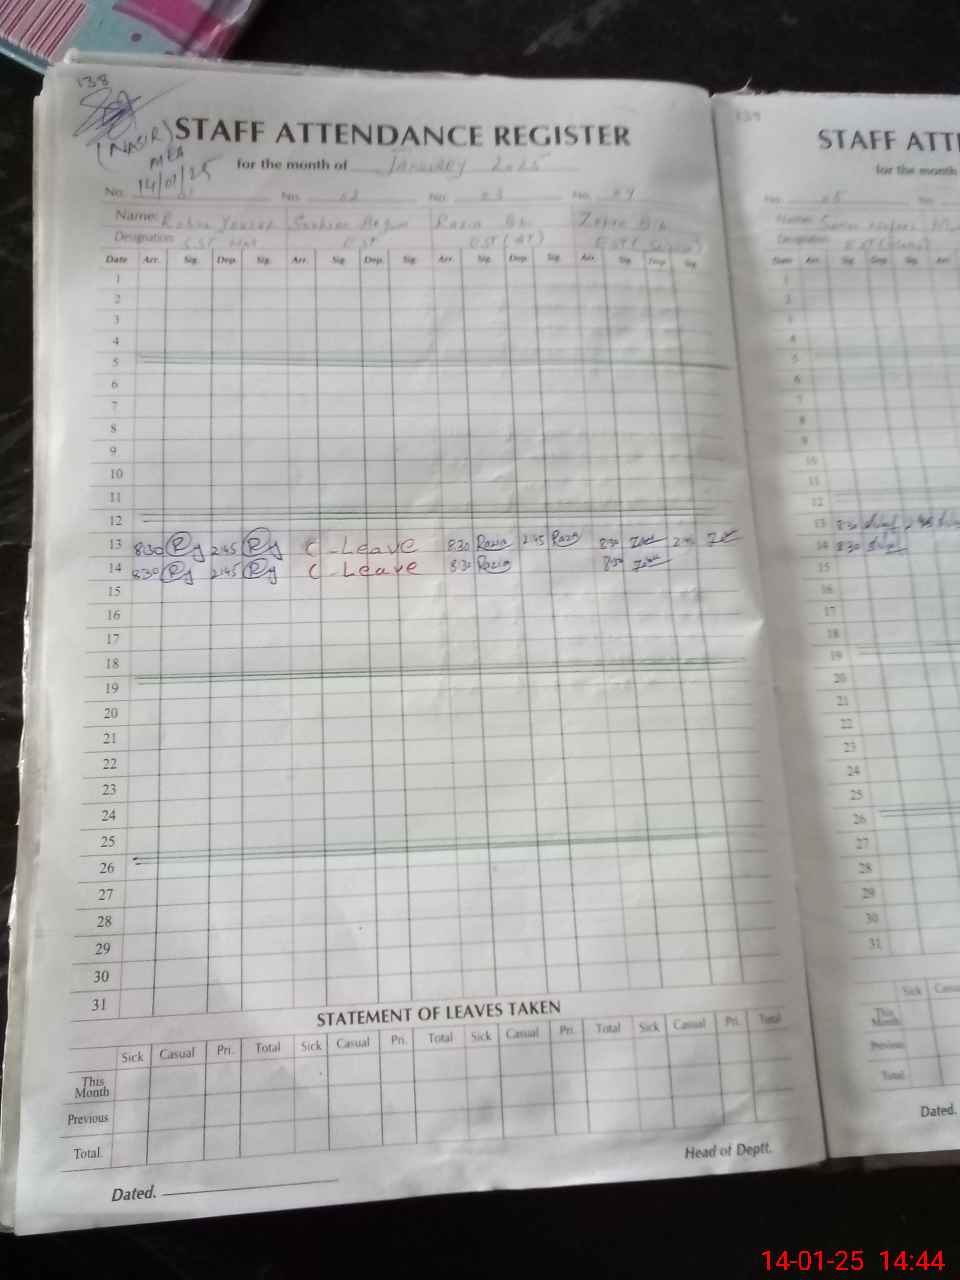 138
STAFF ATTENDANCE REGISTER
(NASIR)
MEA
14/01/25
for the month of January 2025
No. No. 02 No. 03 No. 04
Name: Begum Razia Bibi Bibi
Designation: EST EST (AT) EST (Science)
Date Arr. Sig. Dep. Sig. Arr. Sig. Dep. Sig. Arr. Sig. Dep. Sig. Arr. Sig. Dep. Sig.
1
2
3
4
5
6
7
8
9
10
11
12
13 830 Ry 245 Ry C-Leave 830 Razia 245 Razia 830
14 830 Ry 245 Ry C-Leave 830 Razia 830
15
16
17
18
19
20
21
22
23
24
25
26
27
28
29
30
31
STATEMENT OF LEAVES TAKEN
Sick Casual Pri. Total Sick Casual Pri. Total Sick Casual Pri. Total Sick Casual Pri. Total
This Month
Previous
Total.
Head of Deptt.
Dated.
139
STAFF
for the month
No. 05 No.
Name:
Designation:
Date Arr. Sig. Dep. Sig. Arr.
1
2
3
4
5
6
7
8
9
10
11
12
13 830 245
14 830
15
16
17
18
19
20
21
22
23
24
25
26
27
28
29
30
31
Sick
This Month
Previous
Total
Dated.
14-01-25 14:44